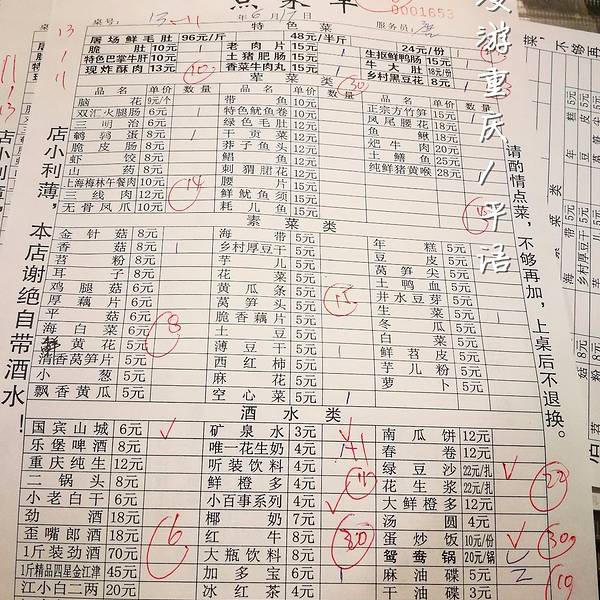 点菜单
桌号: 13-11 年6月17日 服务员: 0001653
特色菜
屠场鲜毛肚 96元/斤 48元/半斤 24元/份
脆肚 10元 老肉片 15元 生抠鲜鸭肠 15元
特色巴掌牛肝 10元 土猪肥肠 15元 牛大肚 18元/份
现炸酥肉 13元 香菜牛肉丸 15元 乡村黑豆花 8元
荤菜类
品名 单价 数量 品名 单价 数量 品名 单价 数量
脑花 9元/个 带鱼 10元 正宗方竹笋 15元
双汇火腿肠 6元 特色鱿鱼卷 10元 凤尾腰花 18元
三明治 6元 绿色毛肚 10元 鱼鳅 18元
鹌鹑蛋 8元 干贡菜 12元 粑牛肉 20元
脆皮肠 8元 荞子鱼头 12元 土鳝鱼 25元
虾饺 8元 鲳鱼 12元 纯鲜猪黄喉 28元
山药 8元 刺猬腰花 12元
上海梅林午餐肉 10元 腰片 15元
三线肉 12元 鲜鱿鱼须 15元
无骨凤爪 10元 耗儿鱼 15元
素菜类
金针菇 8元 海带 5元 年糕 5元
香菇 8元 乡村厚豆干 5元 豆皮 5元
苕粉 8元 芋儿 5元 莴笋尖 5元
耳子 8元 花菜 5元 土鸭血 5元
鸡腿菇 6元 黄瓜条 5元 井水豆芽 5元
厚藕片 6元 莴笋头 5元 生菜 5元
平菇 6元 脆香藕片 5元 冬瓜 5元
海白菜 6元 土豆 5元 白菜 5元
鲜黄花 5元 薄豆干 5元 鲜苕皮 5元
清香莴笋片 5元 西红柿 5元 芋儿粉 5元
小葱 5元 麻花 5元 萝卜 5元
飘香黄瓜 5元 空心菜 5元
酒水类
国宾山城 6元 矿泉水 3元 南瓜饼 12元
乐堡啤酒 8元 唯一花生奶 4元 春卷 12元
重庆纯生 12元 听装饮料 4元 绿豆沙 22元/扎
二锅头 8元 鲜橙多 4元 花生浆 22元/扎
小老白干 6元 小百事系列 4元 大鲜橙多 12元
劲酒 18元 椰奶 7元 汤圆 4元
歪嘴郎酒 18元 红牛 8元 蛋炒饭 10元/份
1斤装劲酒 70元 大瓶饮料 8元 鸳鸯锅 20元/锅
1斤精品四星金江津 45元 加多宝 6元 麻油碟 5元
江小白二两 20元 冰红茶 4元 干油碟 3元
店小利薄，本店谢绝自带酒水！
请酌情点菜，不够再加，上桌后不退换。
漫游重庆/平语